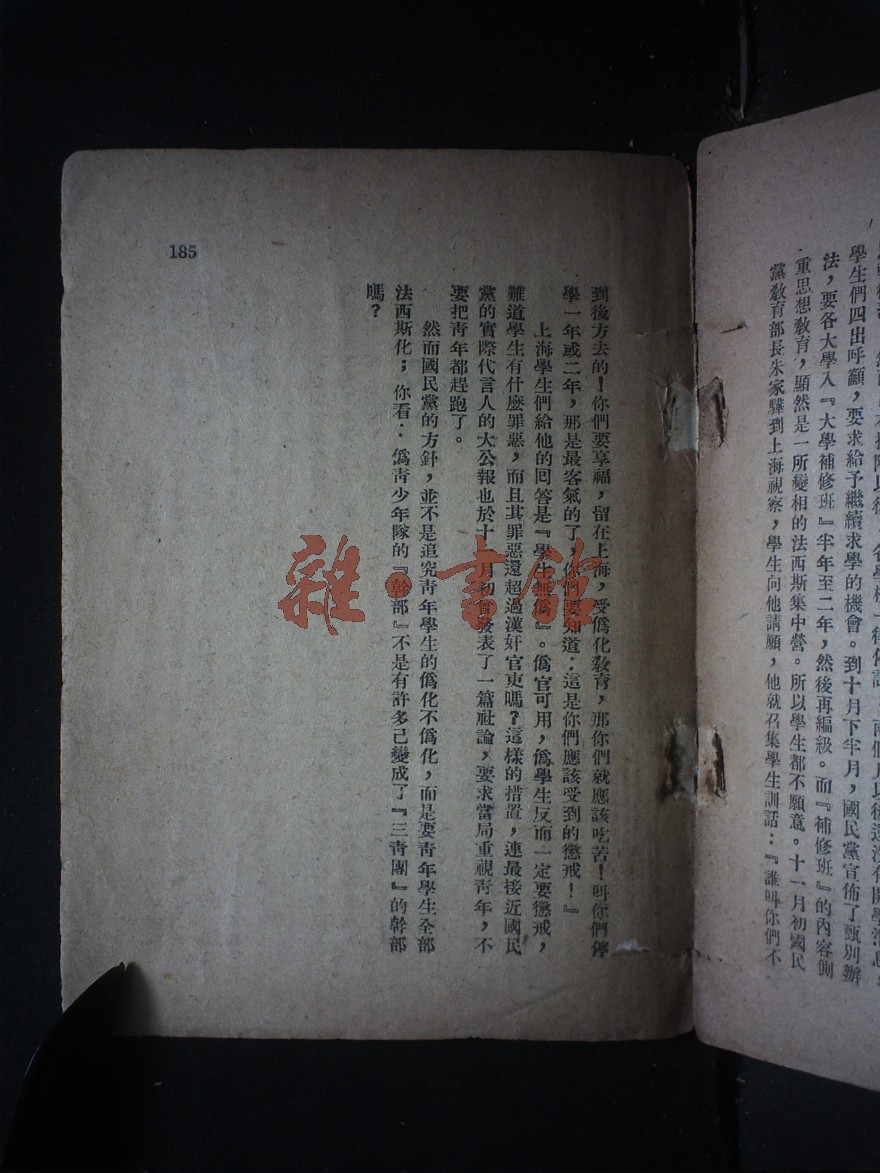 學生們四出呼籲，要求給予繼續求學的機會。到十月下半月，國民黨宣佈了甄別辦
法，要各大學入『大學補修班』半年至二年，然後再編級。而『補修班』的內容側
重思想敎育，顯然是一所變相的法西斯集中營。所以學生都不願意。十一月初國民
黨敎育部長朱家驊到上海視察，學生向他請願，他就召集學生訓話：『誰叫你們不
到後方去的！你們要享福，留在上海，受僞化敎育，那你們就應該吃苦！叫你們停
學一年或二年，那是最客氣的了，你們要知道：這是你們應該受到的懲戒！』
上海學生們給他的回答是『學生無僞』。僞官可用，僞學生反而一定要懲戒，
難道學生有什麼罪惡，而且其罪惡還超過漢奸官吏嗎？這樣的措置，連最接近國民
黨的實際代言人的大公報也於十月初旬發表了一篇社論，要求當局重視靑年，不
要把靑年都趕跑了。
然而國民黨的方針，並不是追究靑年學生的僞化不僞化，而是要靑年學生全部
法西斯化；你看：僞靑少年隊的『幹部』不是有許多已變成了『三靑團』的幹部
嗎？
185
雜·書館